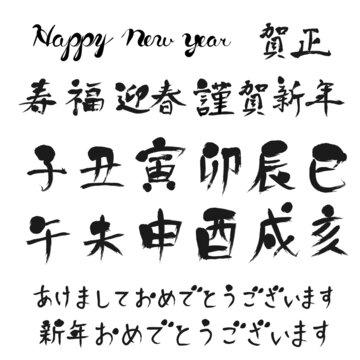 Happy New year 賀正
寿福 迎春 謹賀新年
子丑寅卯辰巳
午未申酉戌亥
あけましておめでとうございます
新年おめでとうございます